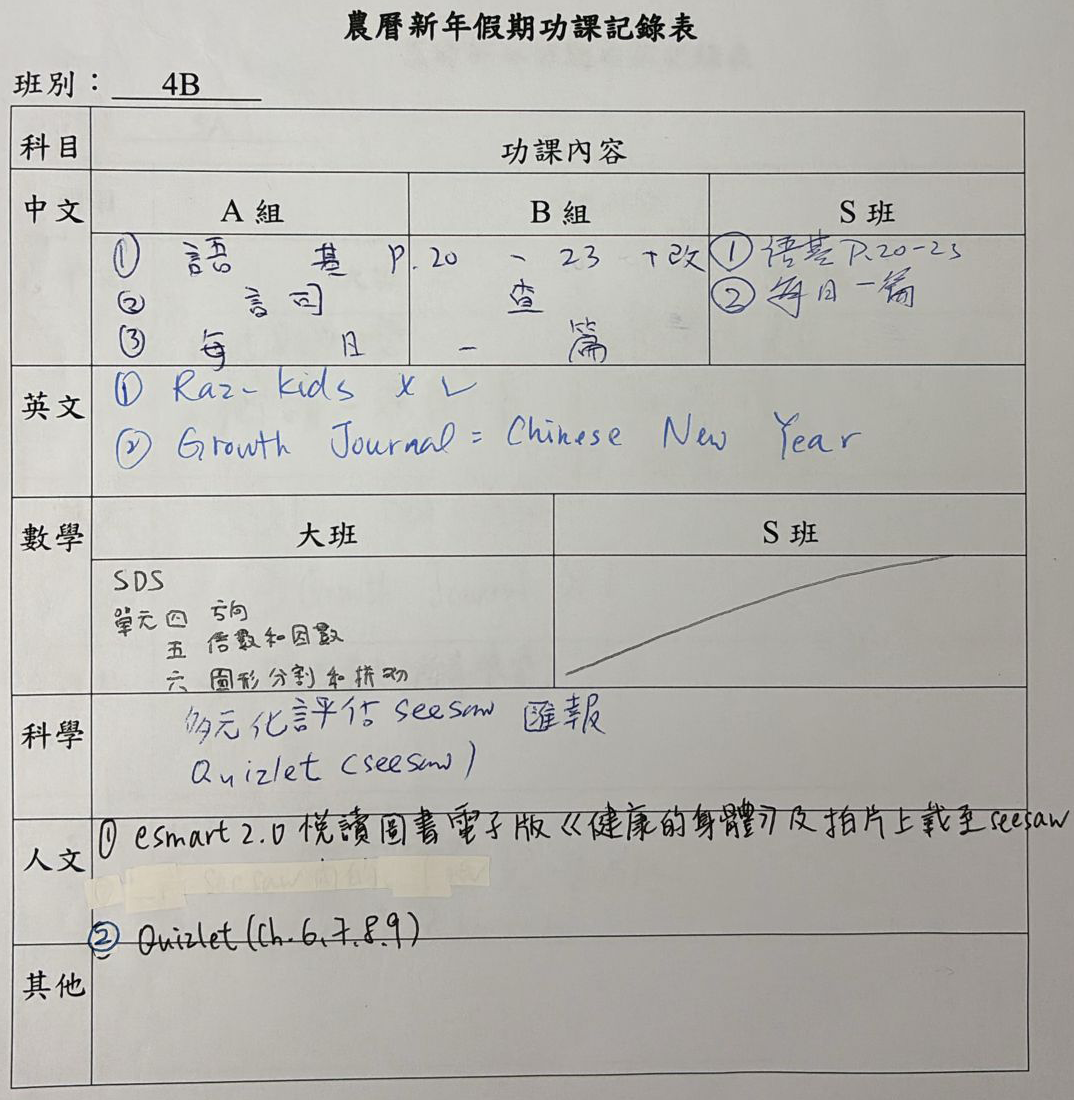 農曆新年假期功課記錄表
班別： 4B
科目 功課內容
中文 A 組 B 組 S 班
① 語基 P.20 - 23 +改 ① 語基 P.20-23
② 詞查 ② 每日一篇
③ 每日一篇
英文 ① Raz-kids x
② Growth Journal = Chinese New Year
數學 大班 S 班
SDS
單元四 方向
五 倍數和因數
六 圖形分割和拼砌
科學 多元化評估 seesaw 匯報
Quizlet (seesaw)
人文 ① esmart 2.0 悅讀圖書電子版《健康的身體》及拍片上載至 seesaw
② Quizlet (Ch. 6, 7, 8, 9)
其他